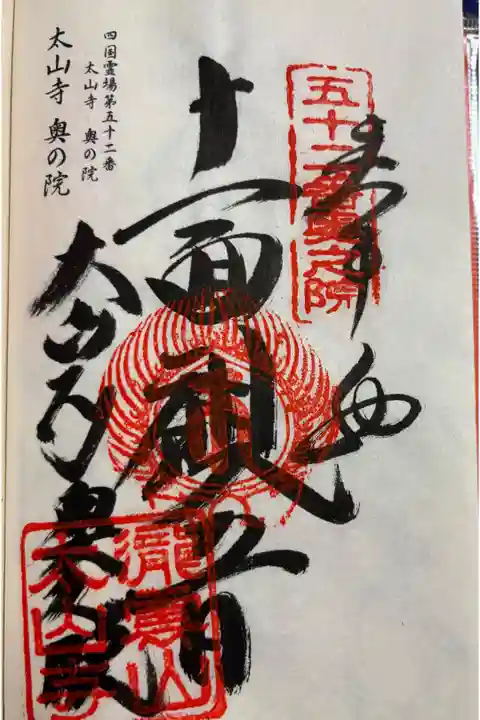 五十二番奥之院
奉納
十一面観音
太山寺奥の院
瀧雲山
太山寺
四国霊場第五十二番
太山寺 奥の院
太山寺 奥の院